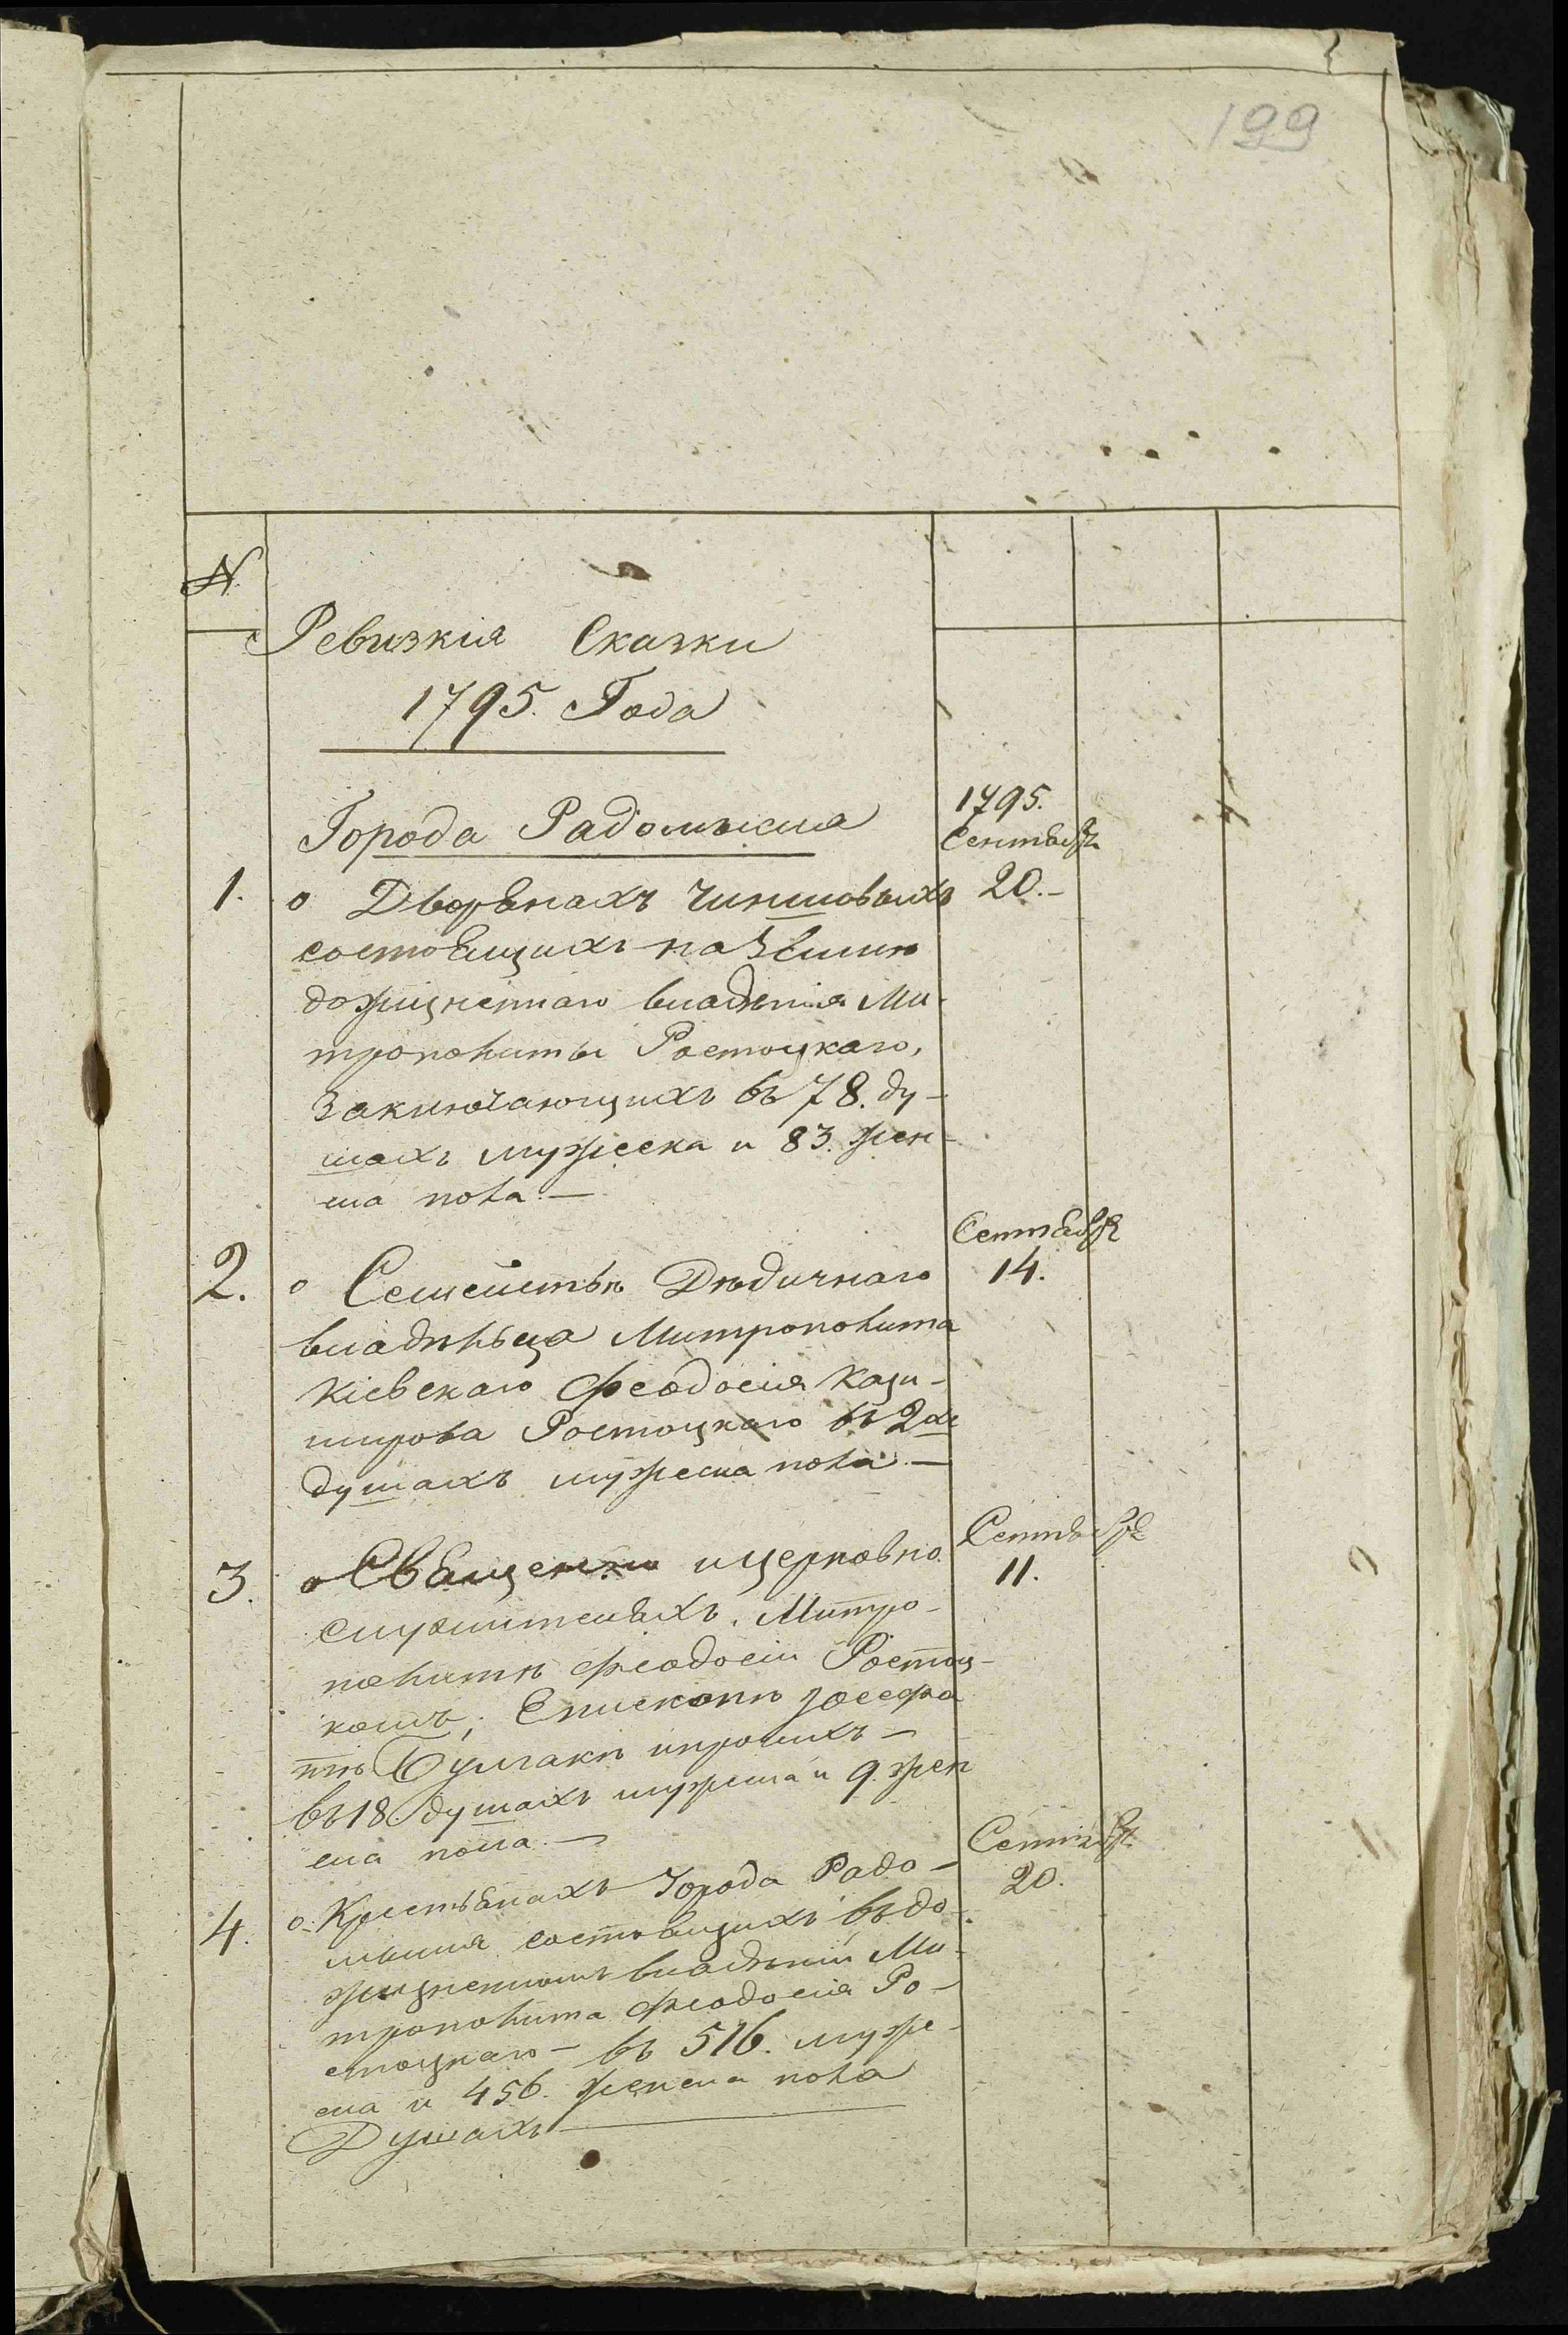 199
№
Ревизкія Сказки
1795. Года
Города Радомысля
1795.
Сентября
1. о Дворянахъ Чиншовыхъ 20.-
состоящихъ на Землѣ
дожизненнаго владѣнія Ми-
трополиты Ростоцкаго,
Заключающихъ въ 78. ду-
шахъ мужеска и 83. жен-
ска пола.—
Сентября
2. о Семействѣ Дѣдичнаго 14.
владѣльца Митрополита
Кіевскаго Феодосія Кази-
мирова Ростоцкаго въ 2хъ
душахъ мужеска пола.—
Сентября
3. о Священно и церковно 11.
служителяхъ, Митро-
политѣ Феодосіи Ростоц-
комъ; Епископѣ Іосафа
тѣ Булгакѣ и прочихъ—
въ 18. душахъ мужеска и 9. жен
ска пола.—
Сентября
4. о Крестьянахъ Города Радо- 20.
мысля состоящихъ въ до-
жизненномъ владѣніи Ми-
трополита Феодосія Ро-
стоцкаго— въ 516. муже-
ска и 456. женска пола
Душахъ—